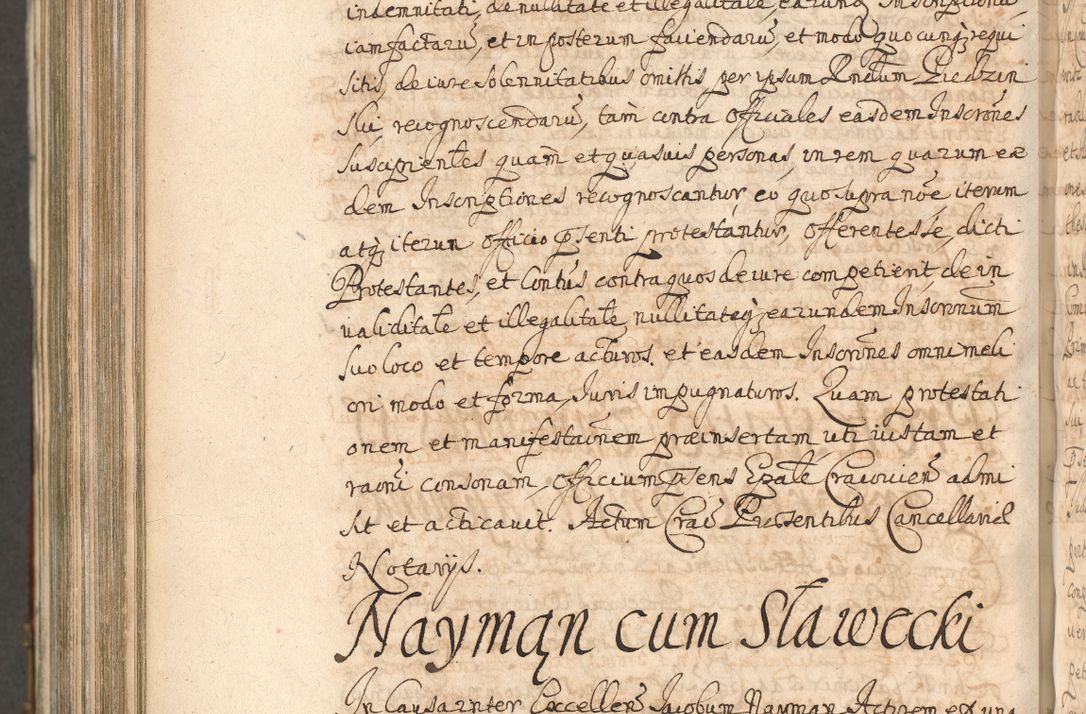 indemnitati, de nullitate et illegalitate, earunq̃ Inscriptionũ,
iam factarũ, et in posterum faciendarũ, et modo quocunq̨ requi
sitis, de iure solennitatibus omissis per ipsum Rndum Piedzin
ski, recognoscendarũ, tam contra Officiales easdem Inscrõnes
suscipientes quam et quasuis personas, in rem quarum eæ
dem Inscriptiones recognoscantur, eo quo supra nõe iterum
atq̨ iterun officio p̃senti protestantur, offerentes se, dicti
Protestantes, et Contus contra quos de iure competierit, de in
ualiditate et illegalitate, nullitateq̨, earundem Inscronum
suo loco et tempore acturos. et easdem Inscrõnes omni meli
ori modo et forma, Juris impugnaturos. Quam protestati
onem et manifestaõnem præinsertam, uti iustam et
raõni consonam, officium p̃sens Epale Cracouieñ admi
sit et acticauit. Actum Crac̃ Præsentibus Cancellariæ
Notarijs.
Naymąn cum Sławecki
In Causa inter Excelleñ Jacobum Nayman Actorem ex una